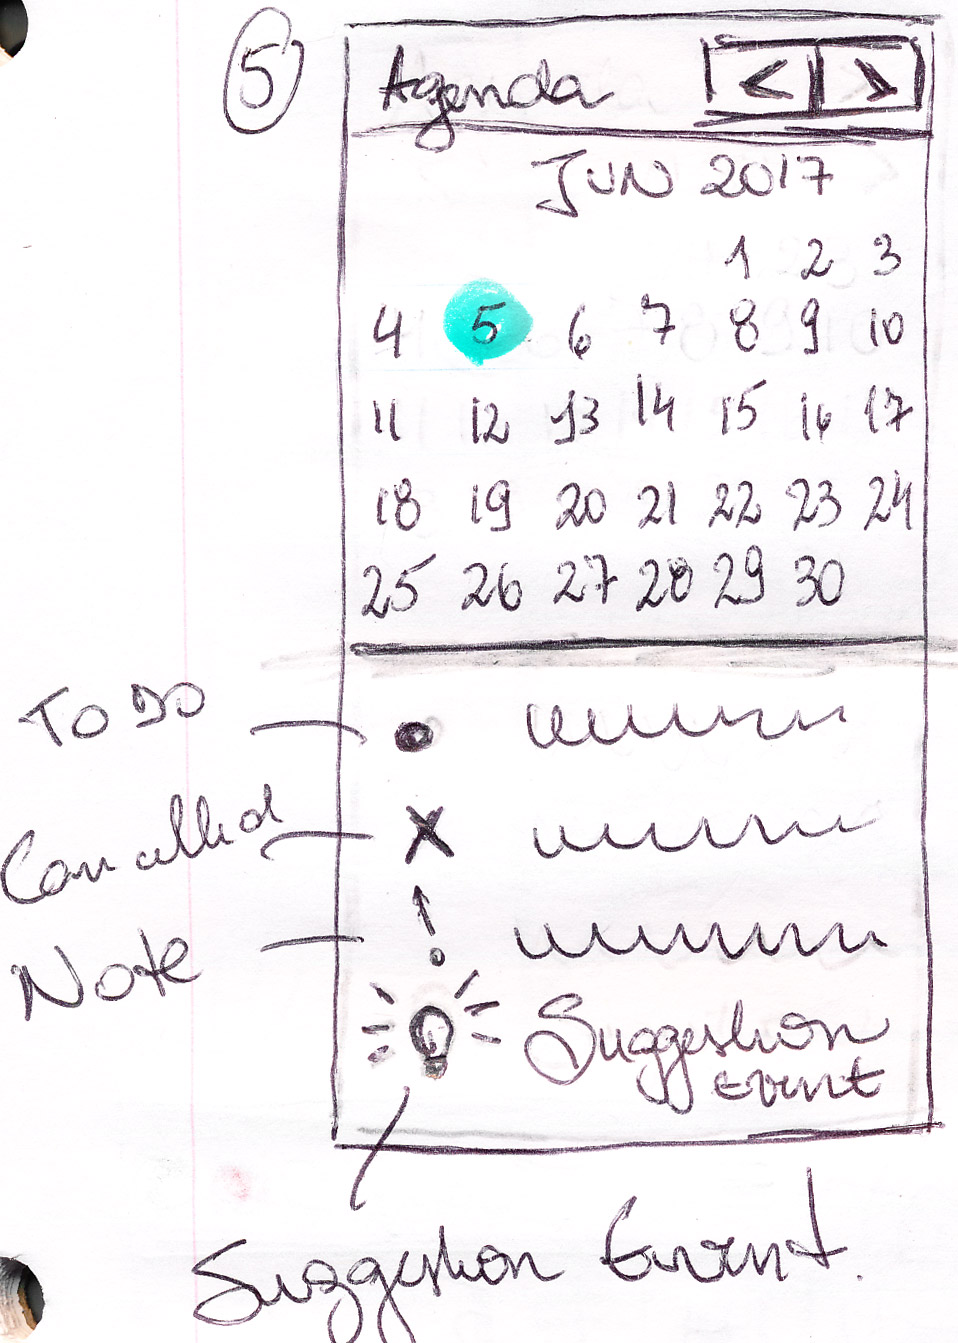 5
Agenda < >
JUN 2017
1 2 3
4 5 6 7 8 9 10
11 12 13 14 15 16 17
18 19 20 21 22 23 24
25 26 27 28 29 30
To Do
Cancelled X
Note
Suggestion
Event
Suggestion Event.